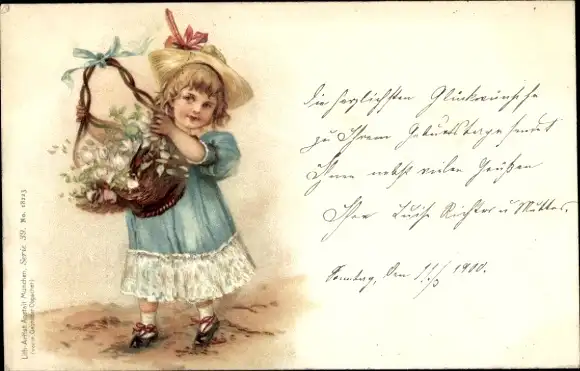 Die herzlichsten Glückwünsche
zu Ihrem Geburtstage sendet
Ihnen nebst vielen Grüßen
Ihre Luise Richter u Mutter.
den 1900.
Lith.-Artist. Anstalt München. Serie 39. No. 18213
(vorm. Gebrüder Obpacher)